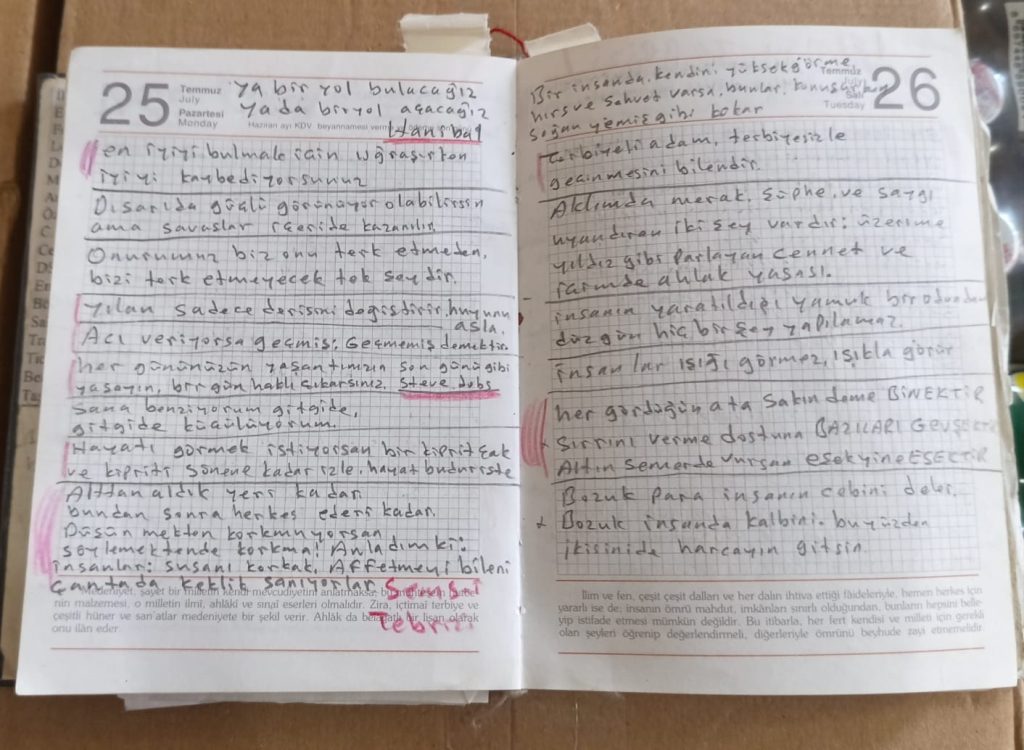 25
Temmuz
July
Pazartesi
Monday
Ya bir yol bulacağız
Yada bir yol açacağız
Haziran ayı KDV beyannamesi
Hanibal
en iyiyi bulmak için uğraşırken
iyiyi kaybediyorsunuz
Dışarıda güçlü görünüyor olabilirsin
ama savaşlar içeride kazanılır.
Onurumuz biz onu terk etmeden,
bizi terk etmeyecek tek şeydir.
Yılan sadece derisini değiştirir, huyunu
asla.
Acı veriyorsa geçmiş; Geçmemiş demektir.
her gününüzün yaşantınızın son günü gibi
yaşayın, bir gün haklı çıkarsınız. Steve Jobs
Sana benziyorum gitgide,
gitgide küçülüyorum.
Hayatı görmek istiyorsan bir kiprit çak
ve kipriti sönene kadar izle, hayat budur işte
Alttan aldık yeri kadar
bundan sonra herkes ederi kadar.
Düşünmekten korkmuyorsan
söylemektende korkma! Anladım ki:
insanlar; susanı korkak, Affetmeyi bileni
Çantada keklik sanıyorlar. Şemsi
Tebrizi
Medeniyet, şayet bir milletin kendi mevcudiyetini anlatmaksa; bu
nin malzemesi, o milletin ilmî, ahlâkî ve sınaî eserleri olmalıdır. Zira, içtimaî terbiye ve
çeşitli hüner ve san'atlar medeniyete bir şekil verir. Ahlâk da belagatlı bir lisan olarak
onu ilân eder.
Bir insanda, kendini yüksek görme
hırs ve şehvet varsa, bunlar, konuşurken
soğan yemiş gibi kokar
Temmuz
July
Salı
Tuesday
26
terbiyeli adam, terbiyesizle
geçinmesini bilendir.
Aklımda merak, şüphe, ve saygı
uyandıran iki şey vardır: üzerime
yıldız gibi parlayan cennet ve
içimde ahlak yasası.
insanın yaratıldığı yamuk bir odundan
düzgün hiç bir şey yapılamaz.
insanlar ışığı görmez, ışıkla görür
her gördüğün ata sakın deme BİNEKTİR
Sırrını verme dostuna BAZILARI GEVŞEKTİR
Altın semerde vursan eşek yine EŞEKTİR
Bozuk para insanın cebini deler,
Bozuk insanda kalbini. bu yüzden
ikisinide harcayın gitsin.
İlim ve fen, çeşit çeşit dalları ve her dalın ihtiva ettiği fâideleriyle, hemen herkes için
yararlı ise de; insanın ömrü mahdut, imkânları sınırlı olduğundan, bunların hepsini belle-
yip istifade etmesi mümkün değildir. Bu itibarla, her fert kendisi ve milleti için gerekli
olan şeyleri öğrenip değerlendirmeli, diğerleriyle ömrünü beyhude zayi etmemelidir.